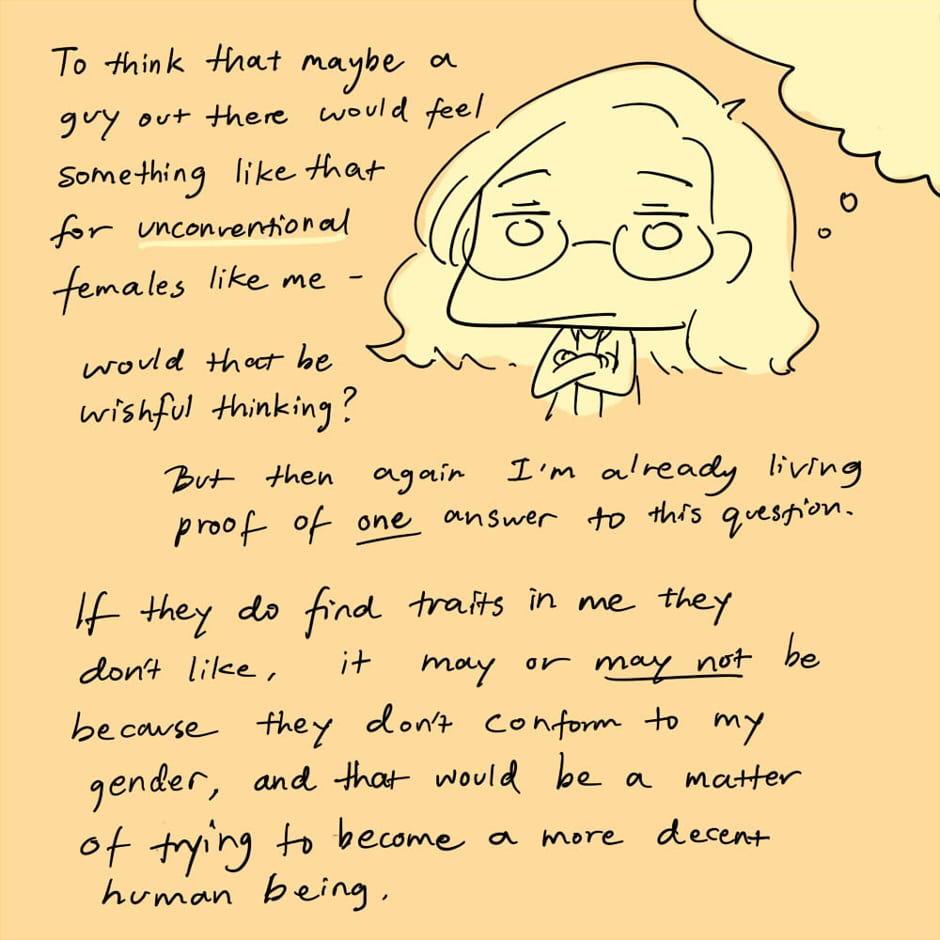 To think that maybe a
guy out there would feel
something like that
for unconventional
females like me -
would that be
wishful thinking?
But then again I'm already living
proof of one answer to this question.
If they do find traits in me they
don't like, it may or may not be
because they don't conform to my
gender, and that would be a matter
of trying to become a more decent
human being.